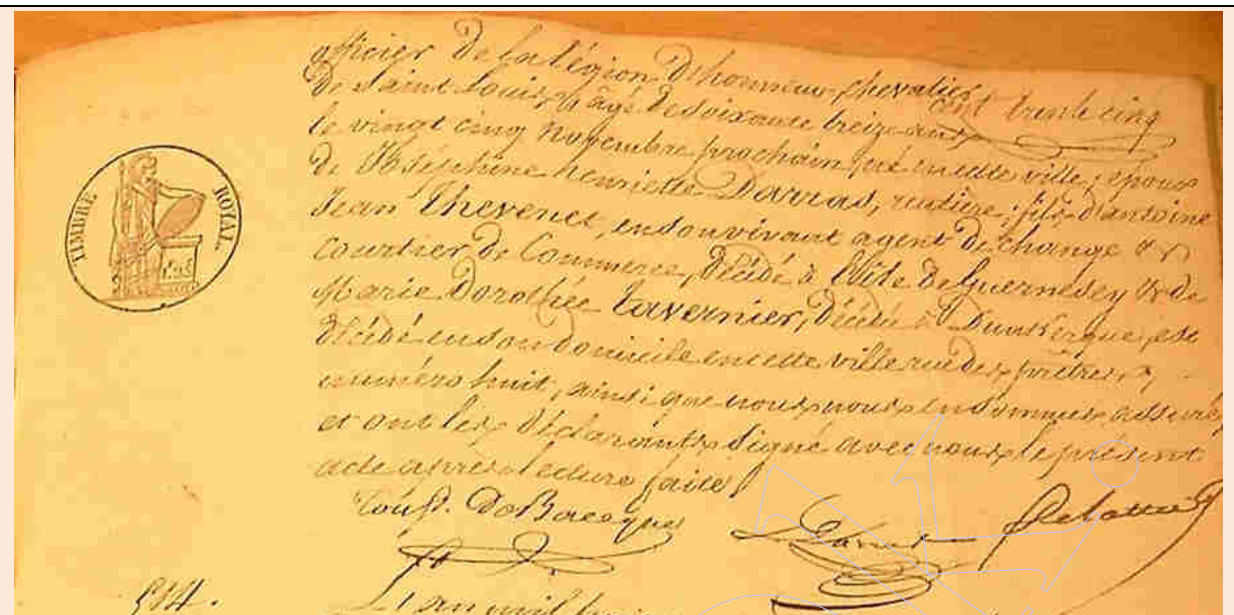 officier De la légion D'honneur, chevalier
De Saint Louis, âgé De soixante treize ans
cent trente cinq
le vingt cinq novembre prochain, né en cette ville; époux
De Joséphine henriette Darras, rentière; fils d'antoine
Jean Thevenet, en son vivant agent De change &
Courtier De Commerce, Décédé à l'isle De Guernesey & de
Marie Dorothée Tavernier, Décédée à Dunkerque, est
Décédé en son Domicile en cette ville rue Des prêtres,
numéro huit, ainsi que nous nous en sommes assuré,
et ont les Déclarants Signé avec nous le présent
acte après lecture faite
TIMBRE ROYAL
Const. DeBacque
L'an mil huit